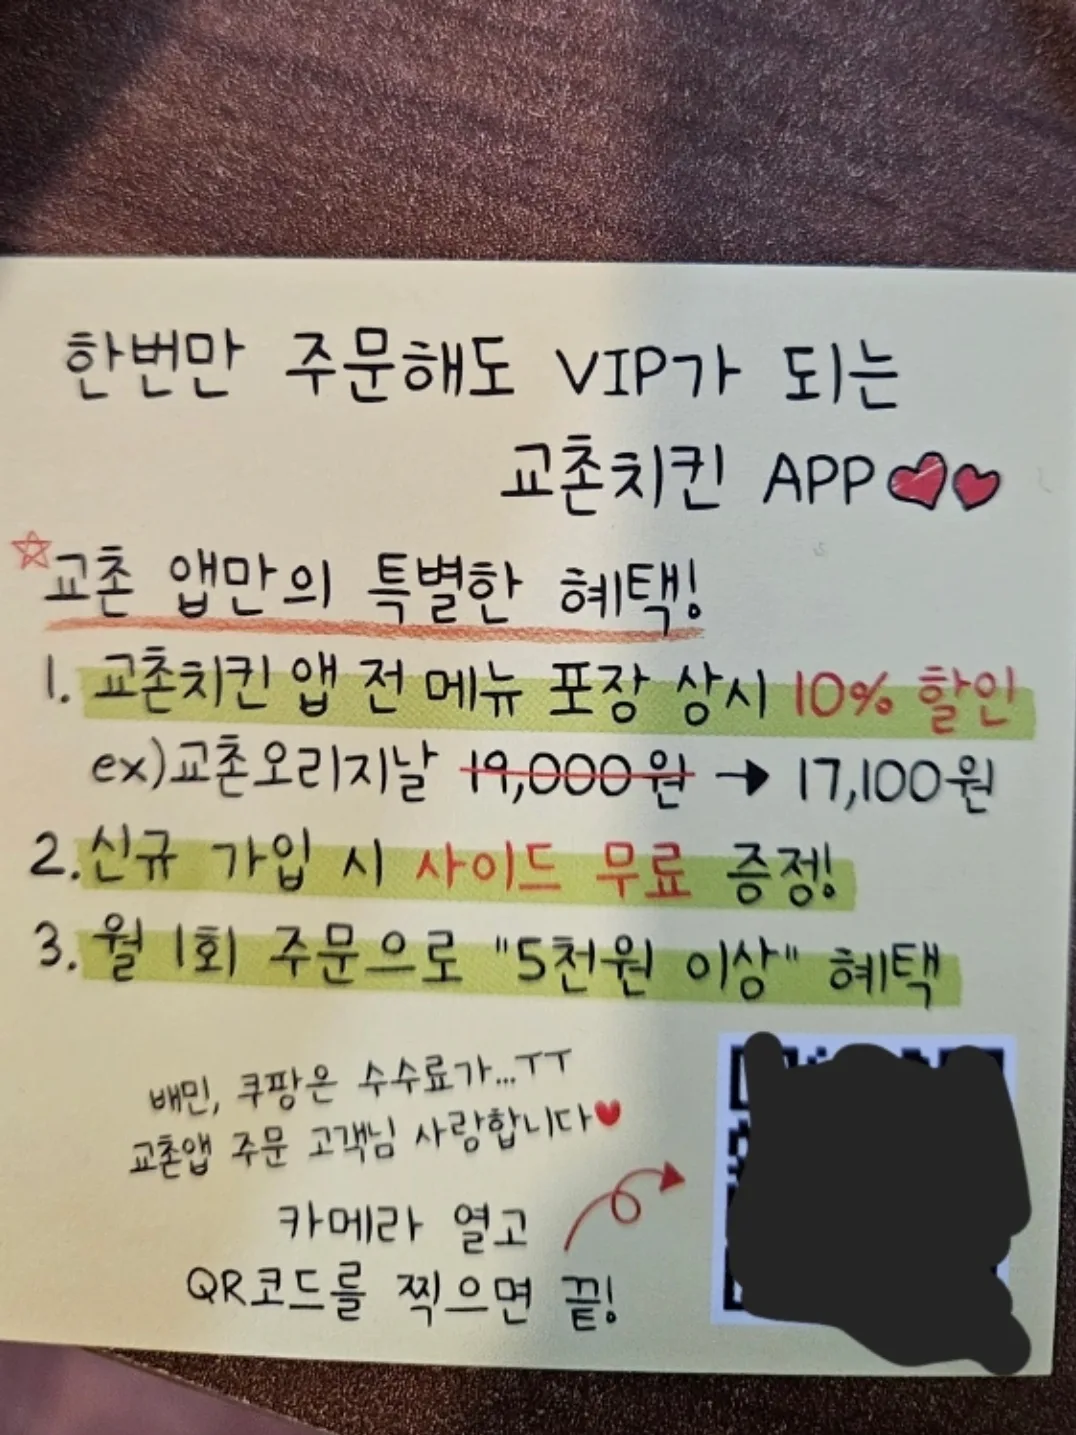 한번만 주문해도 VIP가 되는
교촌치킨 APP
교촌 앱만의 특별한 혜택!
1. 교촌치킨 앱 전 메뉴 포장 상시 10% 할인
ex)교촌오리지날 19,000원 → 17,100원
2. 신규 가입 시 사이드 무료 증정!
3. 월 1회 주문으로 "5천원 이상" 혜택
배민, 쿠팡은 수수료가...ㅜㅜ
교촌앱 주문 고객님 사랑합니다♥
카메라 열고
QR코드를 찍으면 끝!